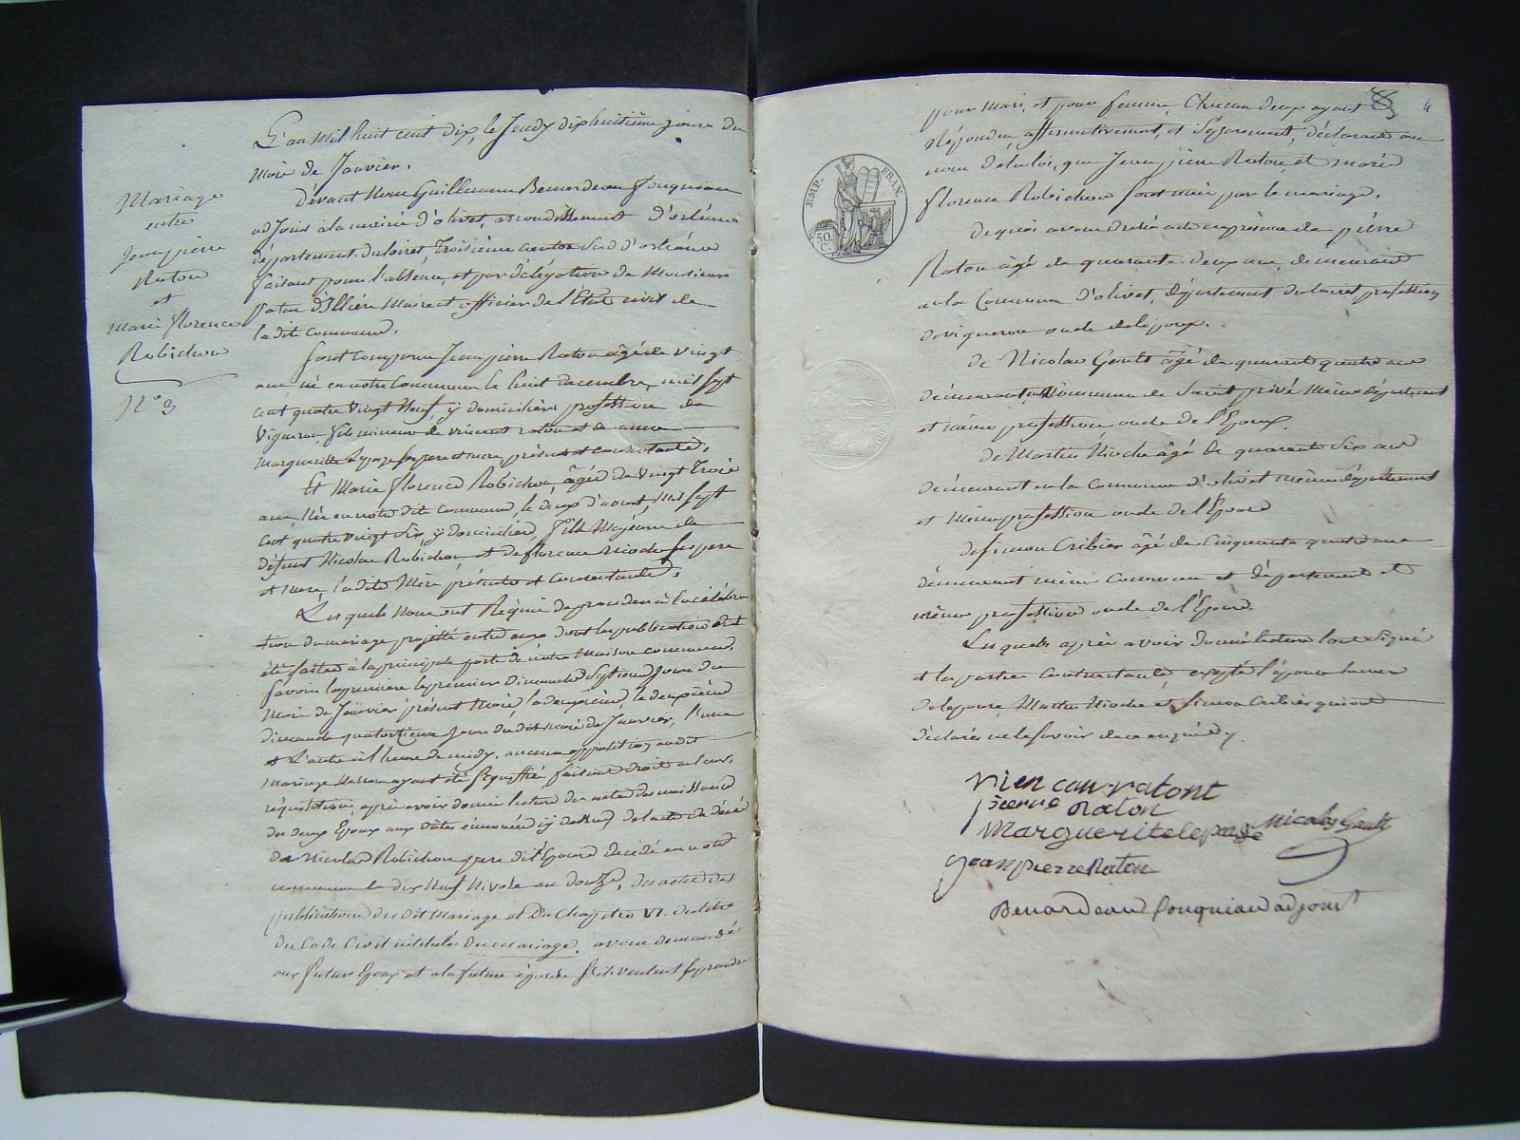 Mariage
entre
Jean pierre
Raton
et
Marie florence
Robichon
N° 3
L'an Mil huit cent dix, le Jeudy dixhuitième jour du
Mois de Janvier.
Devant Nous Guillaume Benardeau fouqniau
adjoint à la mairie d'olivet, arrondissement d'orléans
département du loiret, troisième canton Sud d'orléans
faisant pour l'absence, et par délégation de Monsieur
maire et officier de l'État civil de
la dite Commune.
Sont comparus Jean pierre Raton âgé de vingt
ans né en notre Commune le huit décembre, mil sept
cent quatre vingt Neuf, y domicilié profession de
Vigneron fils mineur de vincent raton et de anne
marguerite lepage ses pere et mere, présents et consentants.
Et Marie florence Robichon, âgée de vingt trois
ans, Née en notre dite commune, le deux d'aoust, Mil sept
cent quatre vingt Six, y domiciliée, fille Majeure de
défunt Nicolas Robichon et de florence Nioche ses pere
et mere, la dite Mère, présente et consentante.
Lesquels Nous ont Requis de proceder à la célébra
tion du mariage projetté entre eux dont les publications ont
été faites à la principale porte de notre Maison commune.
Savoir la premiere le premier Dimanche Septième Jour du
Mois de Janvier présent Mois, la deuxième, le deuxième
dimanche quatorzième Jour du dit mois de Janvier, l'une
et l'autre à l'heure de midy. aucune opposition audit
Mariage Ne nous ayant été Signiffiée, faisant droit à leur
réquisition, après avoir donné lecture des actes de naissance
des deux Epoux aux dates énoncées cy dessus, de l'acte de décès
de Nicolas Robichon pere de l'Epouse décédé en notre
commune le dix Neuf Nivose an douze, des actes des
publications du dit Mariage et Du Chapitre VI. du titre
du Code Civil intitulé Du mariage. avons demandé
au futur Epoux et à la future épouse S'ils veulent Se prendre
4
pour Mari, et pour femme, Chacun deux ayant
Répondu affirmativement, et Séparément, déclarons au
nom de la loi, que Jean pierre Raton, et marie
florence Robichon sont unis par le mariage.
De quoi avons dressé acte en présence de pierre
Raton âgé de quarante deux ans, demeurant
en la Commune d'olivet, département du loiret profession
de vigneron oncle de l'époux.
de Nicolas Gault âgé de quarante quatre ans
demeurant Commune de Saint privé même département
et même profession oncle de l'Epoux.
de Martin Nioche âgé de quarante Six ans
demeurant en la Commune d'olivet même département
et même profession oncle de l'Epouse
de Simon Cribier âgé de Cinquante quatre ans
demeurant même commune et département et
même profession oncle de l'Epouse.
Lesquels après avoir donné lecture l'ont signé
et les parties contractantes, excepté l'épouse la mere
de l'epouse, Martin Nioche et Simon Cribier qui ont
déclarés ne le savoir de ce enquis.
EMP. FRAN.
50 C.
ratont
pierre Raton
Marguerite lepage Nicolas Gault
jean pierre Raton
Benardeau fouqniau adjoint